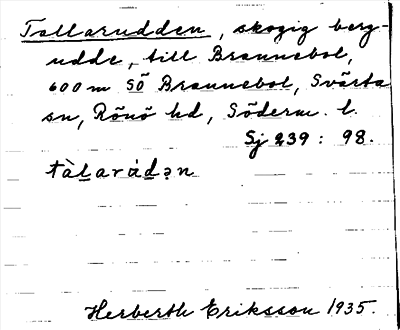 Tallarudden, skogig berg-
udde, till Brannebol,
600 m SÖ Brannebol, Svärta
sn, Rönö hd, Söderm. l.
Sj 239 : 98.
tàlarúdən
Herberth Eriksson 1935.